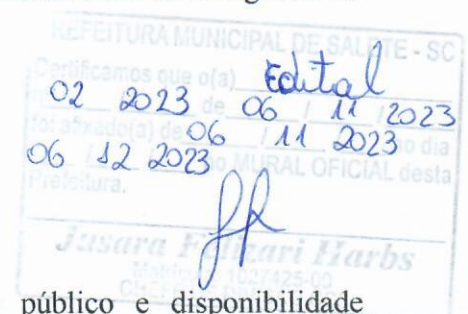 PREFEITURA MUNICIPAL DE SALETE - SC
Certificamos que o(a) Edital
02 2023 de 06 / 11 / 2023
foi afixado(a) de 06 / 11 2023 ao dia
06 12 2023 no MURAL OFICIAL desta
Prefeitura.
Jusara Harbs
Matrícula 1027425-00
público e disponibilidade